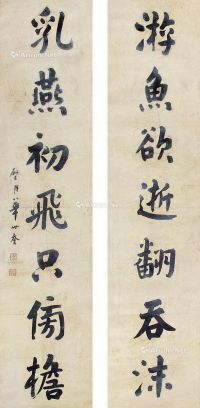 游魚欲逝翻吞沫
乳燕初飛只傍檐